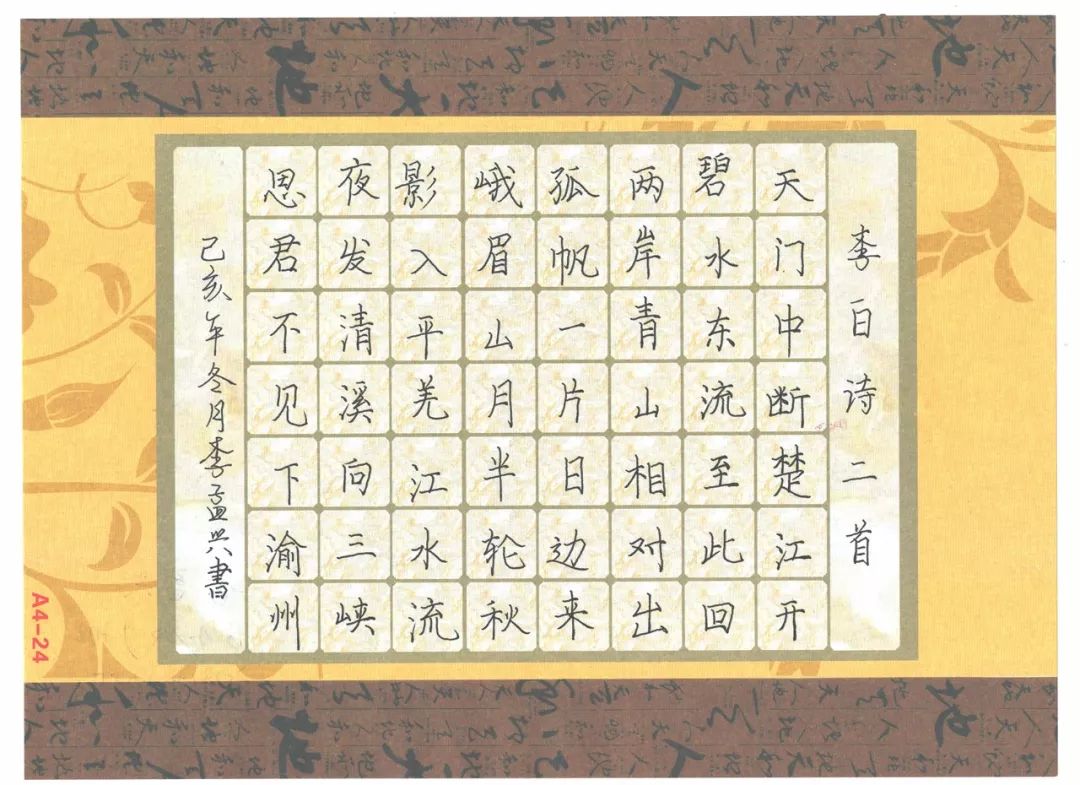 李白诗二首
天门中断楚江开
碧水东流至此回
两岸青山相对出
孤帆一片日边来
峨眉山月半轮秋
影入平羌江水流
夜发清溪向三峡
思君不见下渝州
己亥年冬月李孟兴書
A4-24